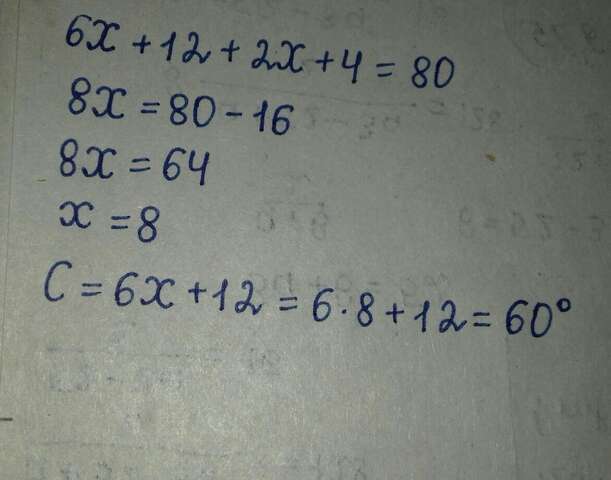 6x + 12 + 2x + 4 = 80
8x = 80 - 16
8x = 64
x = 8
C = 6x + 12 = 6 · 8 + 12 = 60°